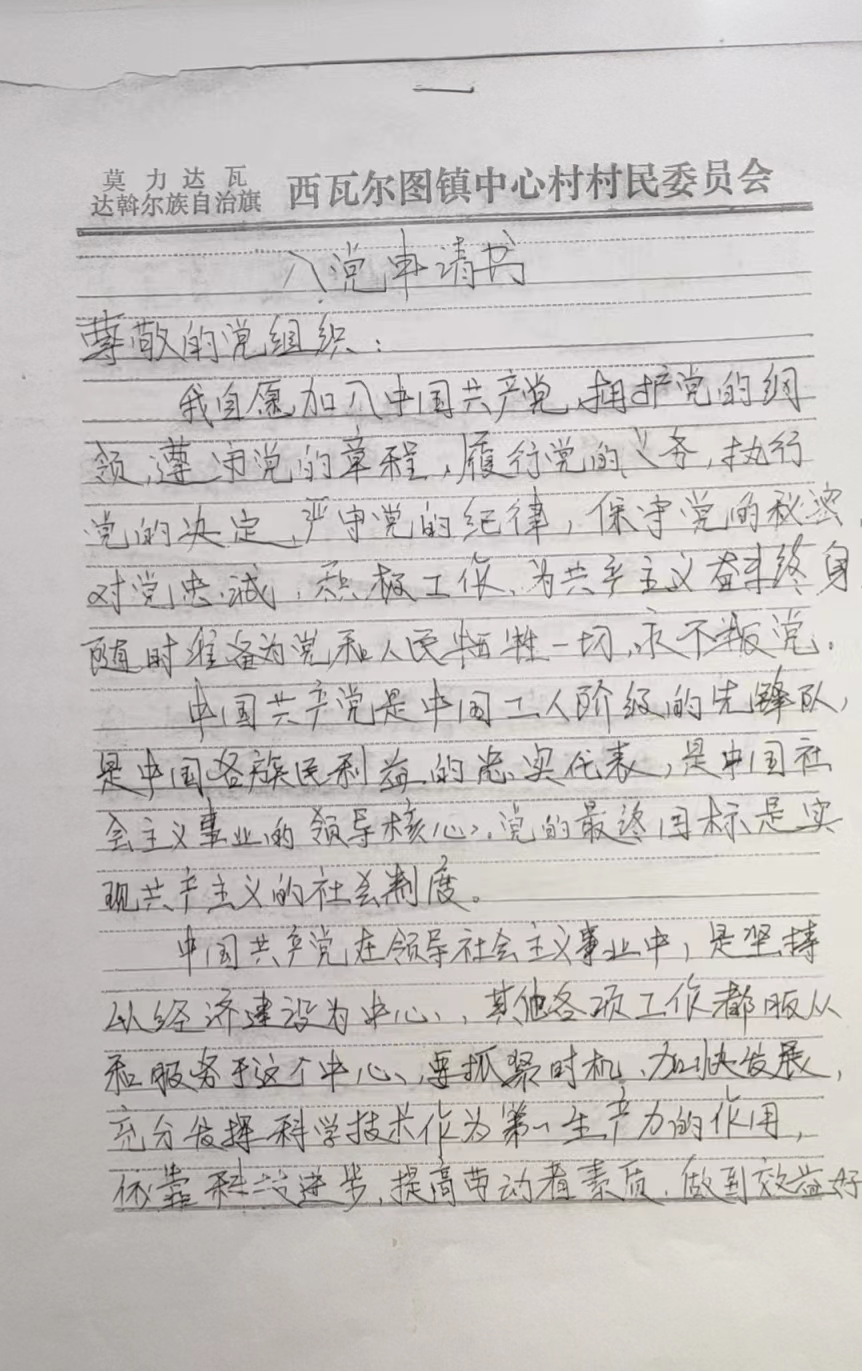 莫力达瓦
达斡尔族自治旗 西瓦尔图镇中心村村民委员会
入党申请书
尊敬的党组织：
我自愿加入中国共产党，拥护党的纲
领，遵守党的章程，履行党的义务，执行
党的决定，严守党的纪律，保守党的秘密，
对党忠诚，积极工作，为共产主义奋斗终身
随时准备为党和人民牺牲一切，永不叛党。
中国共产党是中国工人阶级的先锋队，
是中国各族民利益的忠实代表，是中国社
会主义事业的领导核心，党的最终目标是实
现共产主义的社会制度。
中国共产党在领导社会主义事业中，是坚持
以经济建设为中心，其他各项工作都服从
和服务于这个中心、要抓紧时机、加快发展，
充分发挥科学技术作为第一生产力的作用，
依靠科技进步，提高劳动者素质，做到效益好